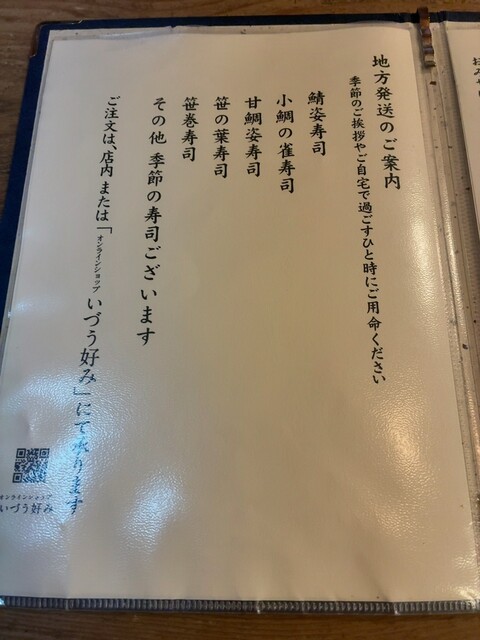 地方発送のご案内
季節のご挨拶やご自宅で過ごすひと時にご用命ください
鯖姿寿司
小鯛の雀寿司
甘鯛姿寿司
笹の葉寿司
笹巻寿司
その他 季節の寿司ございます
ご注文は、店内 または「オンラインショップ いづう好み」にて承ります
オンラインショップ
いづう好み